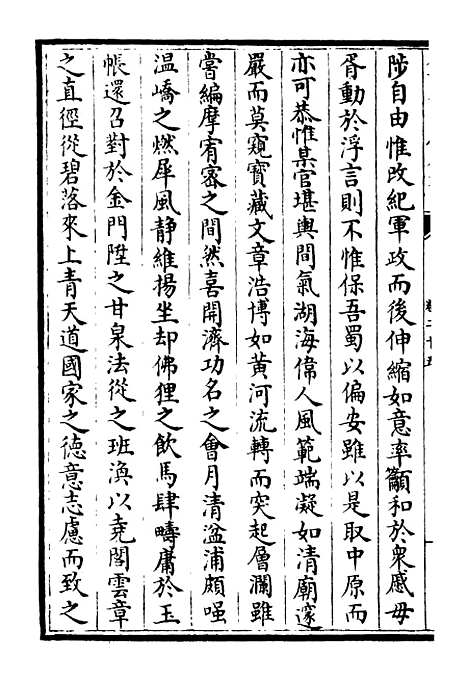 陟自由惟改紀軍政而後伸縮如意率籲和於衆慼毋
胥動於浮言則不惟保吾蜀以偏安雖以是取中原而
亦可恭惟某官堪輿間氣湖海偉人風範端凝如清廟邃
嚴而莫窺寶藏文章浩博如黃河流轉而突起層瀾雖
嘗編摩宥密之間然喜開濟功名之會月清湓浦頗嗤
温嶠之燃犀風靜維揚坐却佛狸之飲馬肆疇庸於玉
帳還召對於金門陞之甘泉法從之班渙以堯閣雲章
之直徑從碧落來上青天道國家之德意志慮而致之
卷二十五